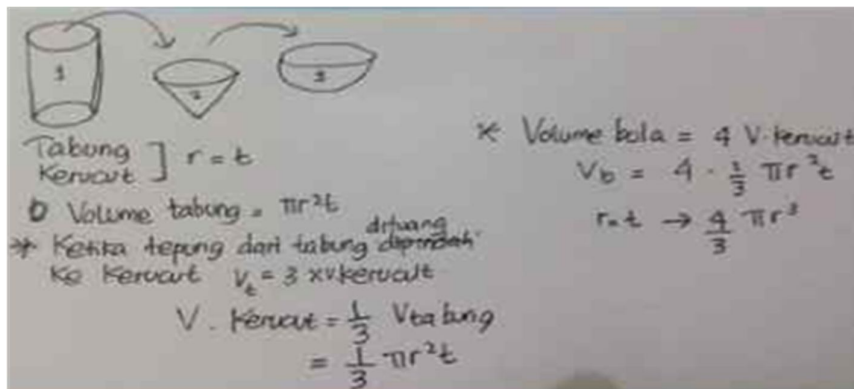 1
2
3
Tabung
Kerucut ] r = t
D Volume tabung = πr²t
* Ketika tepung dari tabung dituang
ke kerucut V_t = 3 x V kerucut
V. Kerucut = 1/3 V tabung
= 1/3 πr²t
* Volume bola = 4 V. kerucut
V_b = 4 · 1/3 πr²t
r = t → 4/3 πr³